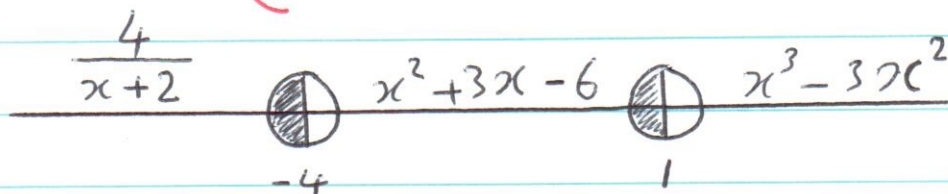 4/(x+2) x²+3x-6 x³-3x²
-4 1